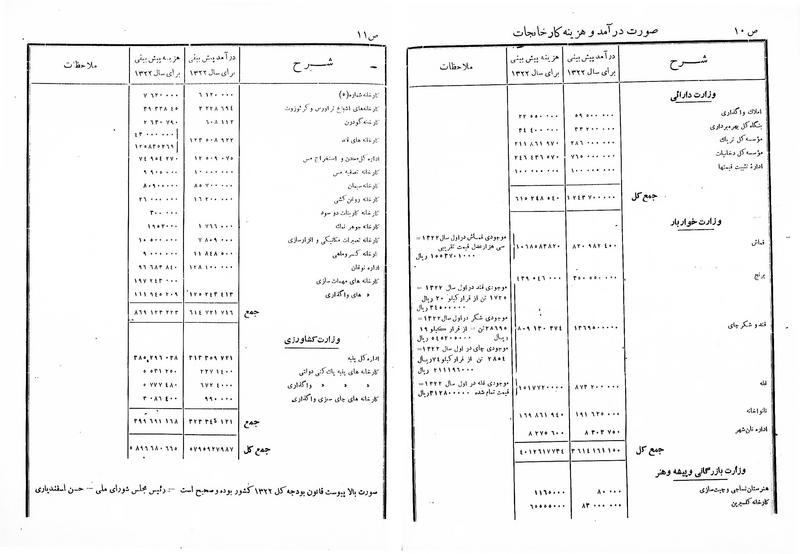 ص ۱۰
صورت درآمد و هزینه کارخانجات
شرح
درآمد پیش بینی برای سال ۱۳۲۲
هزینه پیش بینی برای سال ۱۳۲۲
ملاحظات
وزارت دارائی
املاک واگذاری ۵۹ ۵۰۰ ۰۰۰ ۲۲ ۵۵۰ ۰۰۰
بنگاه کل بهره‌برداری ۳۳ ۲۰۰ ۰۰۰ ۳۴ ۴۰۰ ۰۰۰
مؤسسه کل تریاک ۲۸۶ ۰۰۰ ۰۰۰ ۲۱۱ ۸۶۱ ۹۷۰
مؤسسه کل دخانیات ۷۶۵ ۰۰۰ ۰۰۰ ۲۴۶ ۴۳۶ ۵۷۰
ادارهٔ تثبیت قیمتها ۱۰۰ ۰۰۰ ۰۰۰ ۱۰۰ ۰۰۰ ۰۰۰
جمع کل ۱ ۲۴۳ ۷۰۰ ۰۰۰ ۶۱۵ ۲۴۸ ۵۴۰
وزارت خواربار
قماش ۸۲۰ ۹۸۲ ۴۰۰ ۱۰۶۸۵۸۳۸۲۰
موجودی قماش در اول سال ۱۳۲۲ =
سی هزار عدل قیمت تقریبی
۱۰۵۳۷۰۱۰۰۰ ریال
برنج ۳۰۰ ۵۵۰ ۰۰۰ ۴۳۹ ۵۴۶ ۰۰۰
قند و شکر چای ۱۳۶۹۵۰۰۰۰۰ ۸۰۹ ۱۳۰ ۳۷۴
موجودی قند در اول سال ۱۳۲۲ =
۱۷۲۵ تن از قرار کیلو ۲۰ ریال
۳۴۵۰۰۰۰۰ ریال
موجودی شکر در اول سال ۱۳۲۲ =
۲۸۶۹۵ تن = از قرار کیلو ۱۹
ریال ۵۴۵۲۰۵۰۰۰ ریال
موجودی چای در اول سال ۱۳۲۲ =
۲۸۵۴ تن از قرار کیلو ۷۴ ریال
۲۱۱۱۹۶۰۰۰ ریال
غله ۸۷۳ ۲۰۰ ۰۰۰ ۱۰۱۷۷۲۰۰۰۰
موجودی غله در اول سال ۱۳۲۲ =
قیمت تمام شده ۳۱۲۸۰۰۰۰۰ ریال
نانواخانه ۱۹۱ ۶۲۵ ۰۰۰ ۱۶۹ ۸۶۱ ۹۴۰
اداره نان شهر ۸ ۳۰۳ ۷۵۰ ۸ ۲۷۵ ۶۰۰
جمع کل ۳ ۶۱۴ ۱۶۱ ۱۵۰ ۴۰۱۲۶۱۷۷۳۴
وزارت بازرگانی و پیشه و هنر
هنرستان نساجی و چیت‌سازی ۸۰ ۰۰۰ ۱۱۶۰۰۰۰
کارخانه گلیسرین ۸۳ ۰۰۰ ۰۰۰ ۶۵۵۵۰۰۰۰
ص ۱۱
شرح
درآمد پیش بینی برای سال ۱۳۲۲
هزینه پیش بینی برای سال ۱۳۲۲
ملاحظات
کارخانه شماره (۵) ۶ ۱۲۰ ۰۰۰ ۷ ۶۲۰ ۰۰۰
کارخانه‌های اشباع تراورس و کرئوزوت ۲ ۲۲۸ ۶۹۴ ۳۹ ۳۳۸ ۴۵۰
کارخانه گودرون ۶۰۸ ۱۱۲ ۲ ۶۳۰ ۷۹۰
کارخانه های قند ۱۲۳ ۵۰۸ ۹۲۲ ۴۳ ۰۰۰ ۰۰۰
۱۲۵۸۳۵۲۶۹
اداره کل معدن و استخراج مس ۱۲ ۵۰۹ ۰۷۵ ۷۴ ۹۵۴ ۲۷۰
کارخانه تصفیه مس ۱۰ ۰۰۰ ۰۰۰ ۹ ۹۰۵ ۰۰۰
کارخانه سیمان ۸۵ ۷۰۰ ۰۰۰ ۸۰۹۰۰ ۰۰۰
کارخانه روغن کشی ۱۶ ۲۰۰ ۰۰۰ ۲۶ ۰۰۰ ۰۰۰
کارخانه کاربنات دو سود ۳۰۰ ۰۰۰
کارخانه جوهر نمک ۱ ۷۶۶ ۰۰۰ ۱۹۵۳۰۰۰
کارخانه تعمیرات مکانیکی و افزارسازی ۷ ۸۰۹ ۰۰۰ ۱۰ ۵۰۰ ۰۰۰
کارخانه کنسرو ماهی ۱۱ ۸۴۸ ۵۰۰ ۹ ۰۰۰ ۰۰۰
اداره نوغان ۱۲۸ ۱۰۰ ۰۰۰ ۹۶ ۶۸۳ ۸۴۰
کارخانه های مهمات سازی ۱۹۷ ۲۴۳ ۰۰۰
» های واگذاری ۱۲۵ ۲۴۳ ۴۱۳ ۱۱۱ ۹۴۵ ۲۰۹
جمع ۶۱۴ ۷۲۱ ۷۱۶ ۸۶۹ ۱۲۳ ۲۲۳
وزارت کشاورزی
اداره کل پنبه ۳۱۳ ۳۵۹ ۷۲۱ ۳۸۵ ۲۹۶ ۰۳۸
کارخانه های پنبه پاک کنی دولتی ۲ ۲۲۷ ۴۰۰ ۵ ۵۳۱ ۲۵۰
» » » واگذاری ۶ ۷۷۲ ۴۰۰ ۵ ۷۷۷ ۴۸۰
کارخانه های چای سازی واگذاری ۹۹۰ ۰۰۰ ۳ ۰۸۶ ۴۰۰
جمع ۳۲۳ ۳۴۶ ۱۲۱ ۳۹۹ ۶۹۱ ۱۶۸
جمع کل ۵۷۹۵۹۲۷۹۸۷ ۵ ۸۹۶ ۶۸۰ ۶۶۵
صورت بالا پیوست قانون بودجه کل ۱۳۲۲ کشور بوده و صحیح است – رئیس مجلس شورای ملی – حسن اسفندیاری